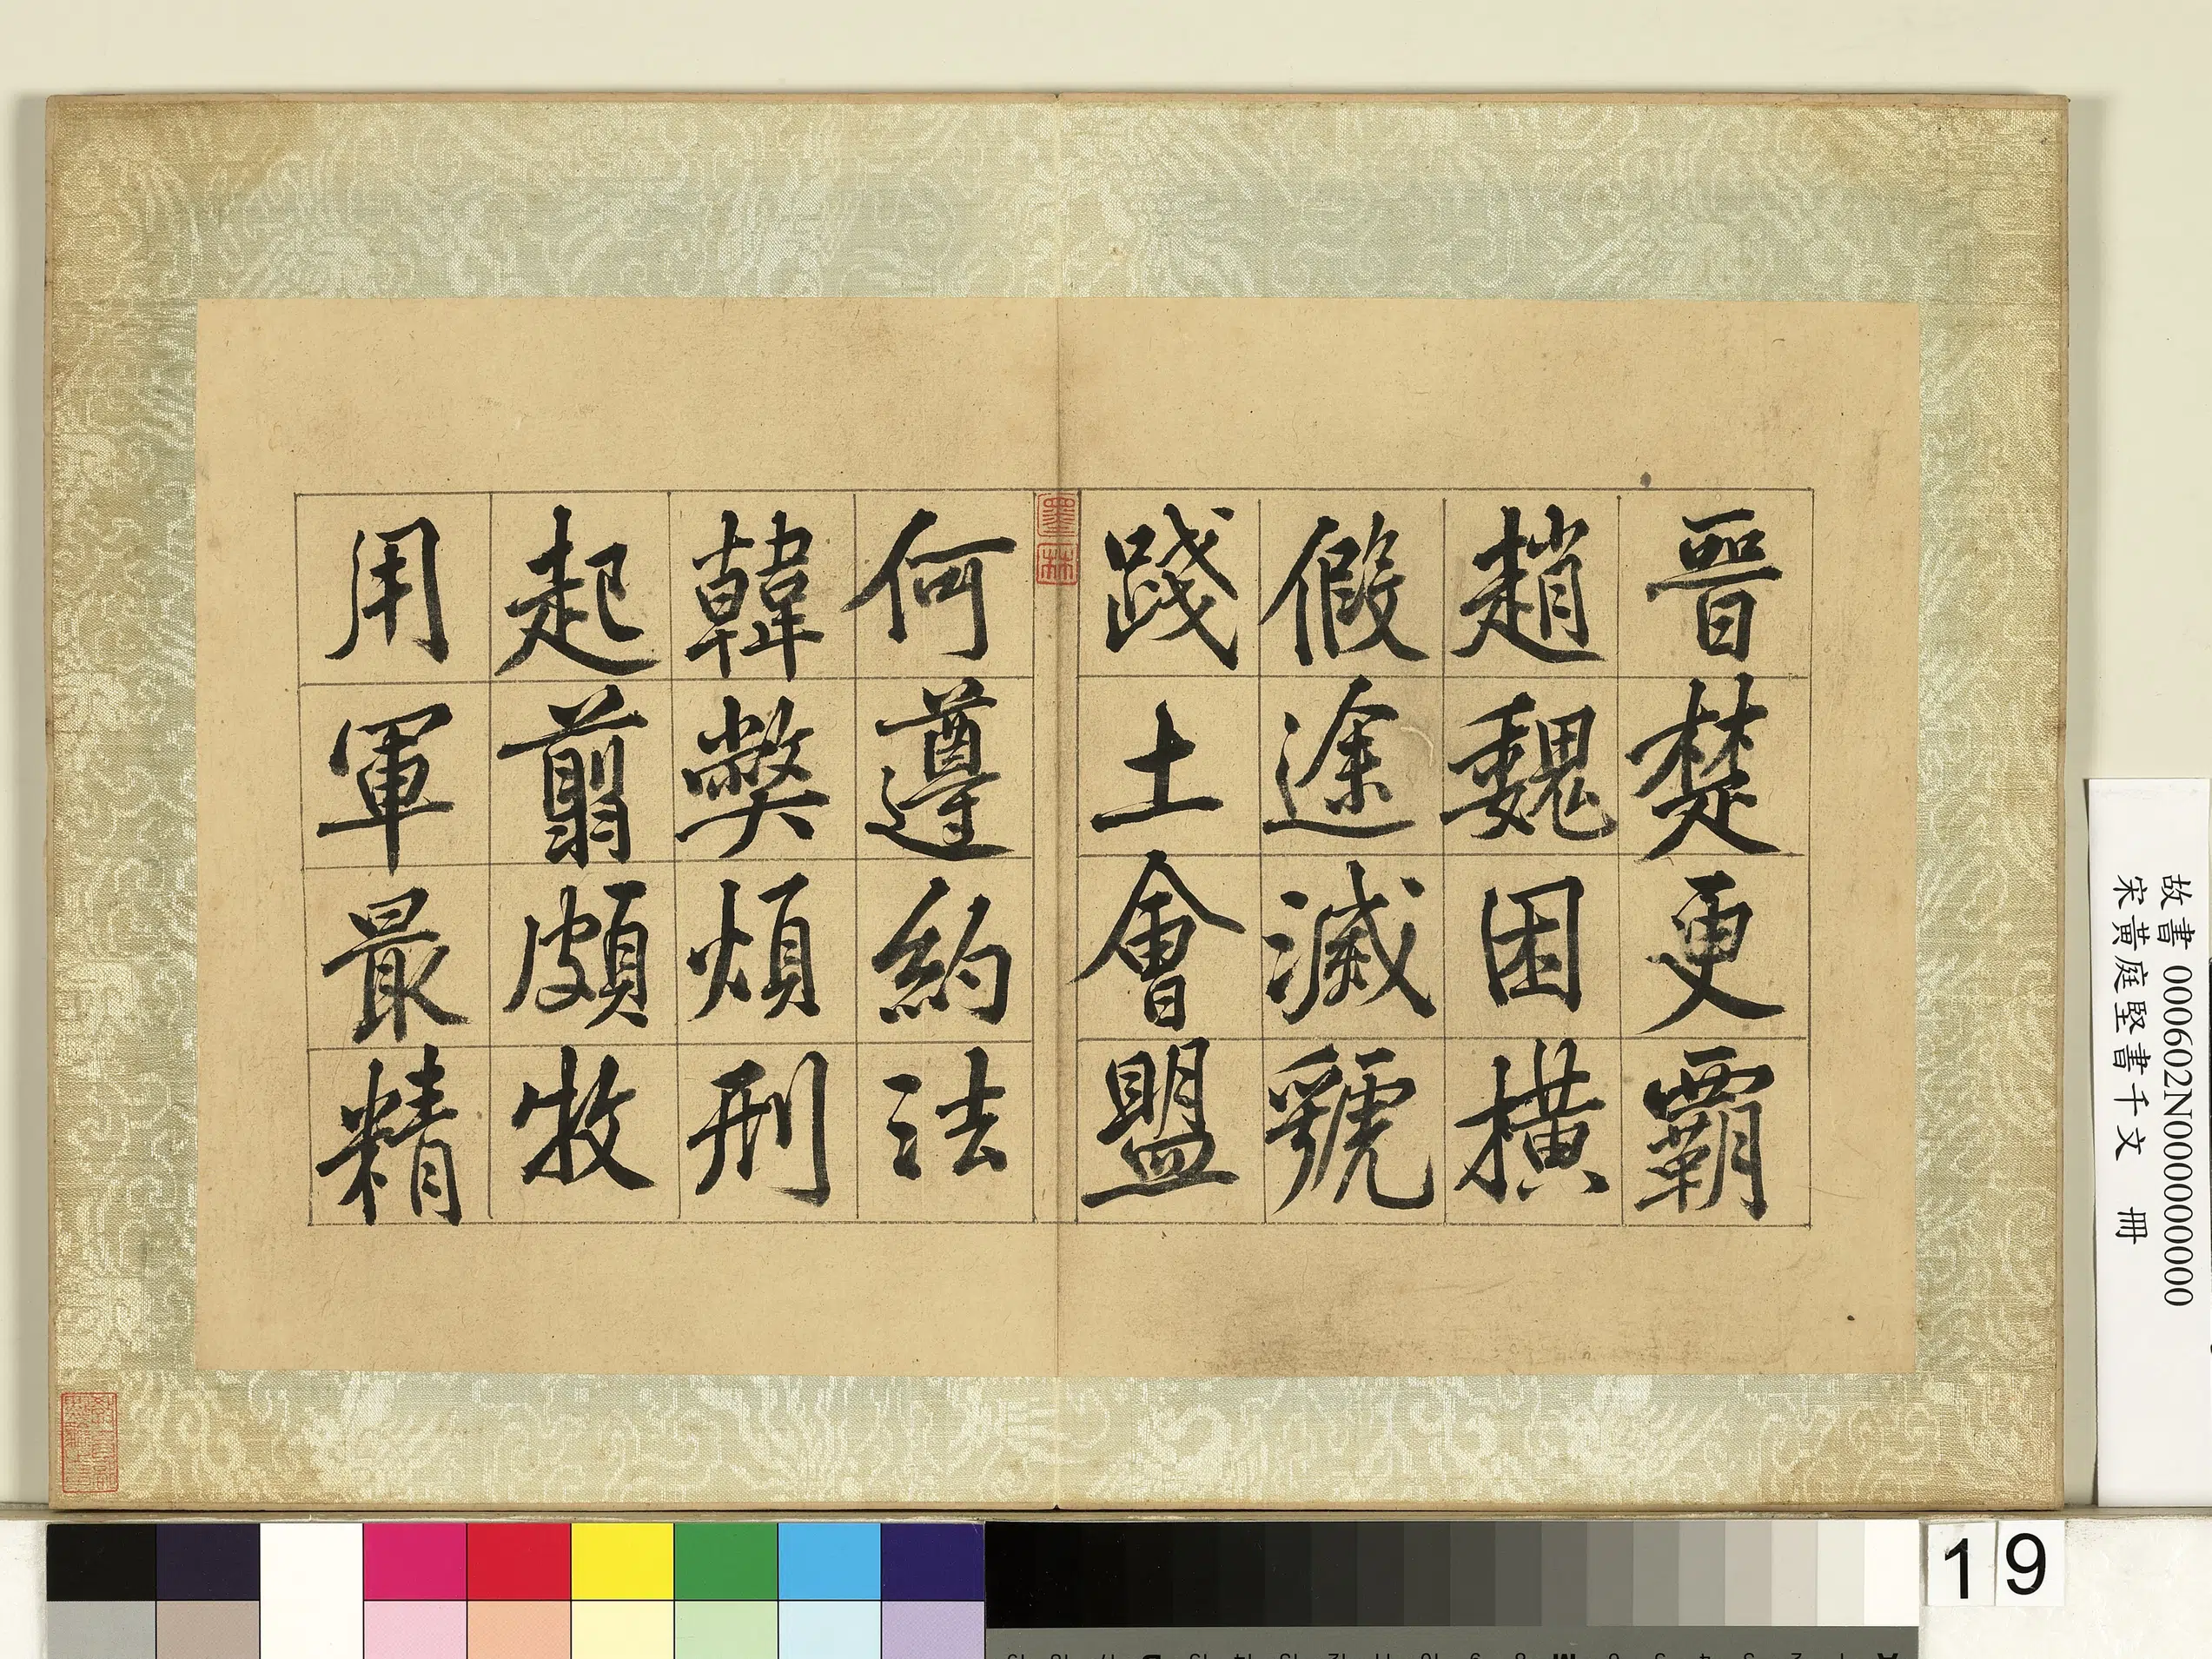 晉楚更覇
趙魏困橫
假途滅虢
踐土會盟
何遵約法
韓弊煩刑
起翦頗牧
用軍最精
墨林
故書 000602N000000000
宋黃庭堅書千文 冊
19